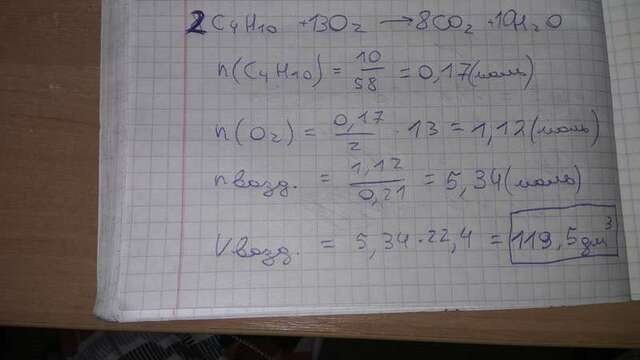 2C₄H₁₀ + 13O₂ → 8CO₂ + 10H₂O
n(C₄H₁₀) = 10/58 = 0,17(моль)
n(O₂) = 0,17/2 · 13 = 1,12(моль)
n возд. = 1,12/0,21 = 5,34(моль)
V возд. = 5,34·22,4 = 119,5дм³